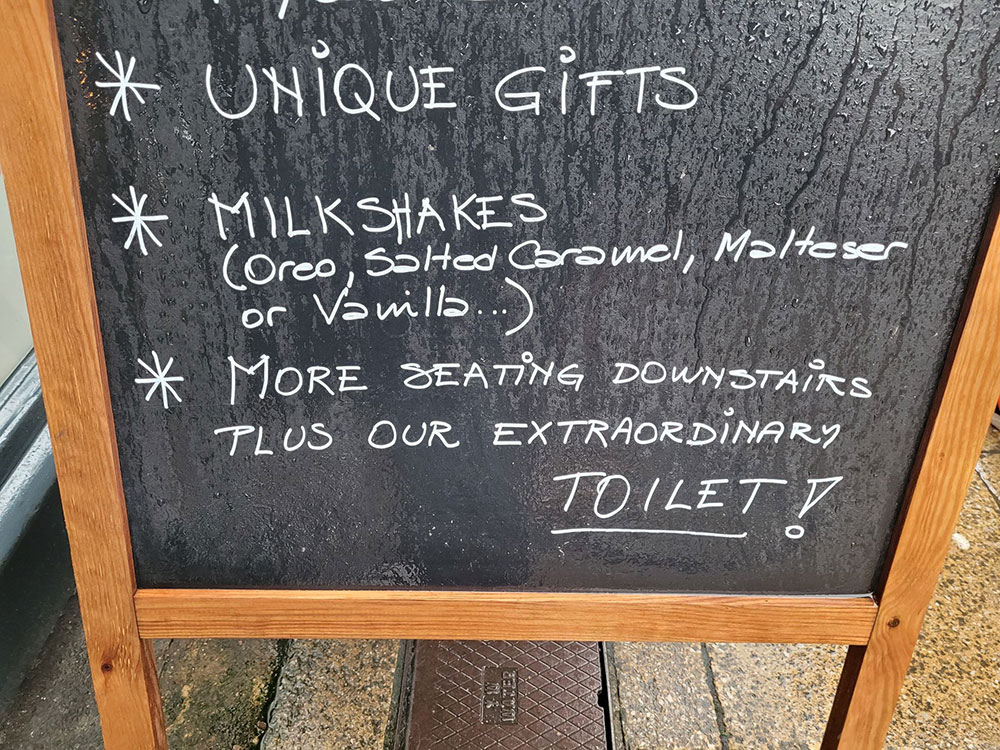 * UNIQUE GIFTS
* MILKSHAKES
(Oreo, Salted Caramel, Malteser
or Vanilla...)
* MORE SEATING DOWNSTAIRS
PLUS OUR EXTRAORDINARY
TOILET!